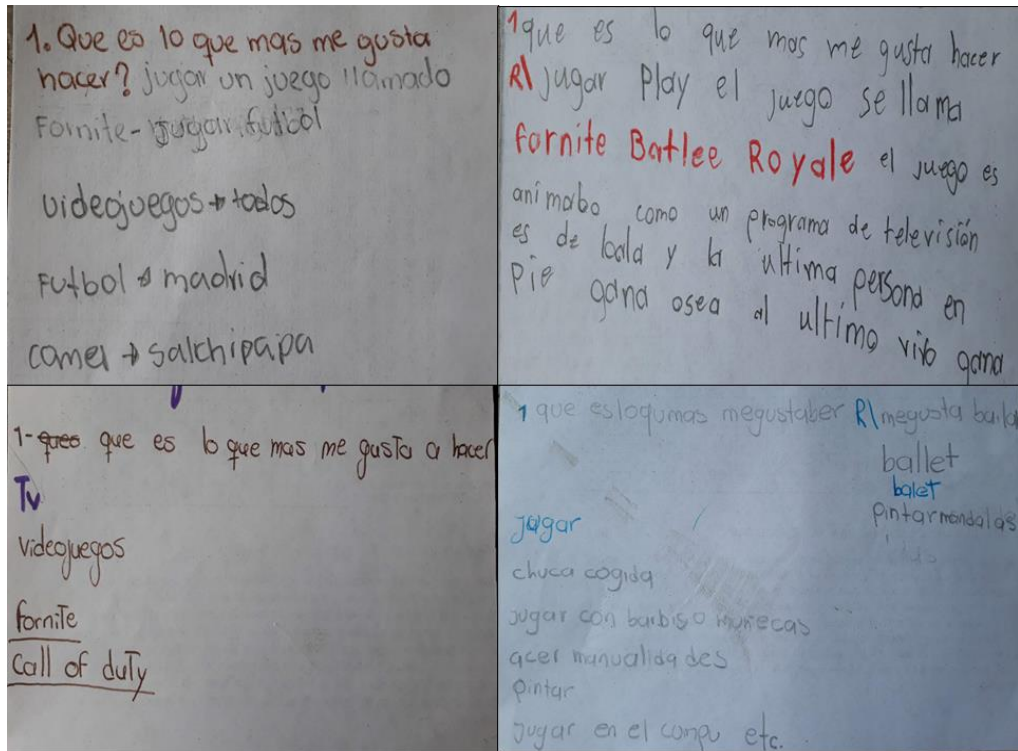 1. Que es lo que mas me gusta
hacer? jugar un juego llamado
Fornite - jugar futbol
videojuegos → todos
Futbol → madrid
comer → salchipapa
1 que es lo que mas me gusta hacer
R\ jugar Play el juego se llama
fornite Batlee Royale el juego es
animabo como un programa de televisión
es de bala y la ultima persona en
pie gana osea al ultimo vivo gana
1- que es lo que mas me gusta a hacer
Tv
videojuegos
fornite
Call of duty
1 que esloqumas megustaber R\ megusta baila
ballet
balet
pintar mandalas
jugar
chuca cogida
jugar con barbis o muñecas
acer manualidades
pintar
jugar en el compu etc.